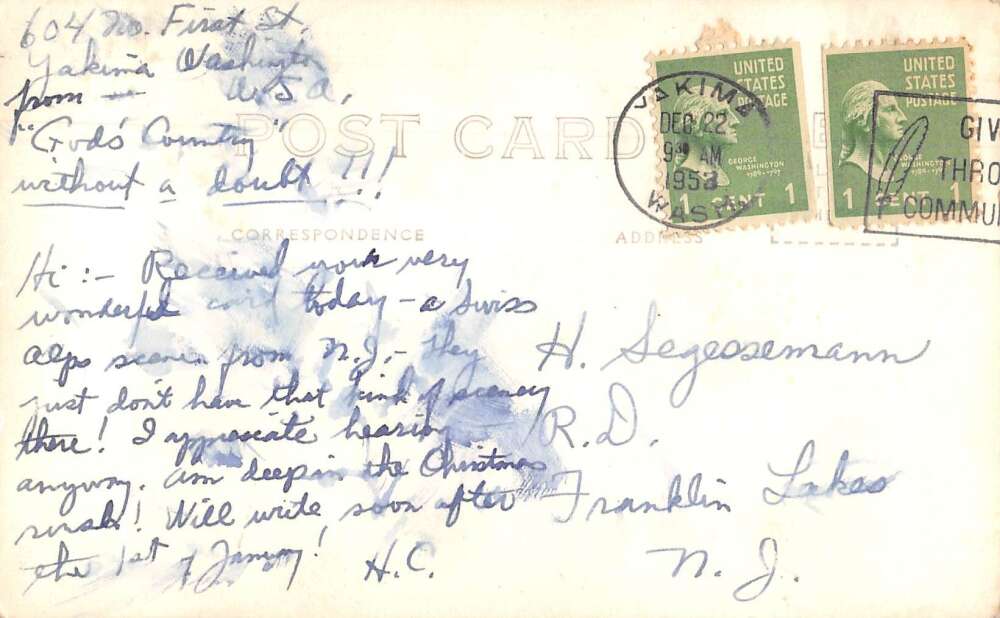 604 No. First St.
Yakima Washington
from — U.S.A.
"God's Country"
without a doubt !!!
POST CARD
CORRESPONDENCE
ADDRESS
UNITED
STATES
POSTAGE
GEORGE
WASHINGTON
1789-1797
1 CENT 1
UNITED
STATES
POSTAGE
GEORGE
WASHINGTON
1789-1797
1 CENT 1
YAKIMA
DEC 22
9 30 AM
1953
WASH.
GIV
THRO
COMMUN
Hi :- Received your very
wonderful card today - a Swiss
Alps scene from N.J. - they
just don't have that kind of scenery
there! I appreciate hearing
anyway. Am deep in the Christmas
rush! Will write soon after
the 1st of January!
H.C.
H. Segessemann
R.D.
Franklin Lakes
N. J.